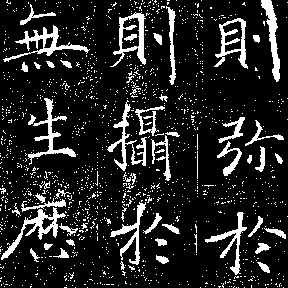 則弥於
則攝於
無生歷